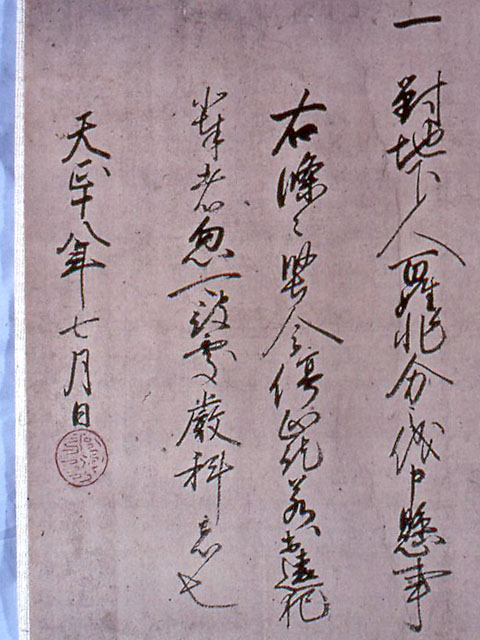 一 對地下人百姓非分之儀申懸事
右條々堅令停止訖若於違犯
輩者忽可被處嚴科者也
天正十八年七月日